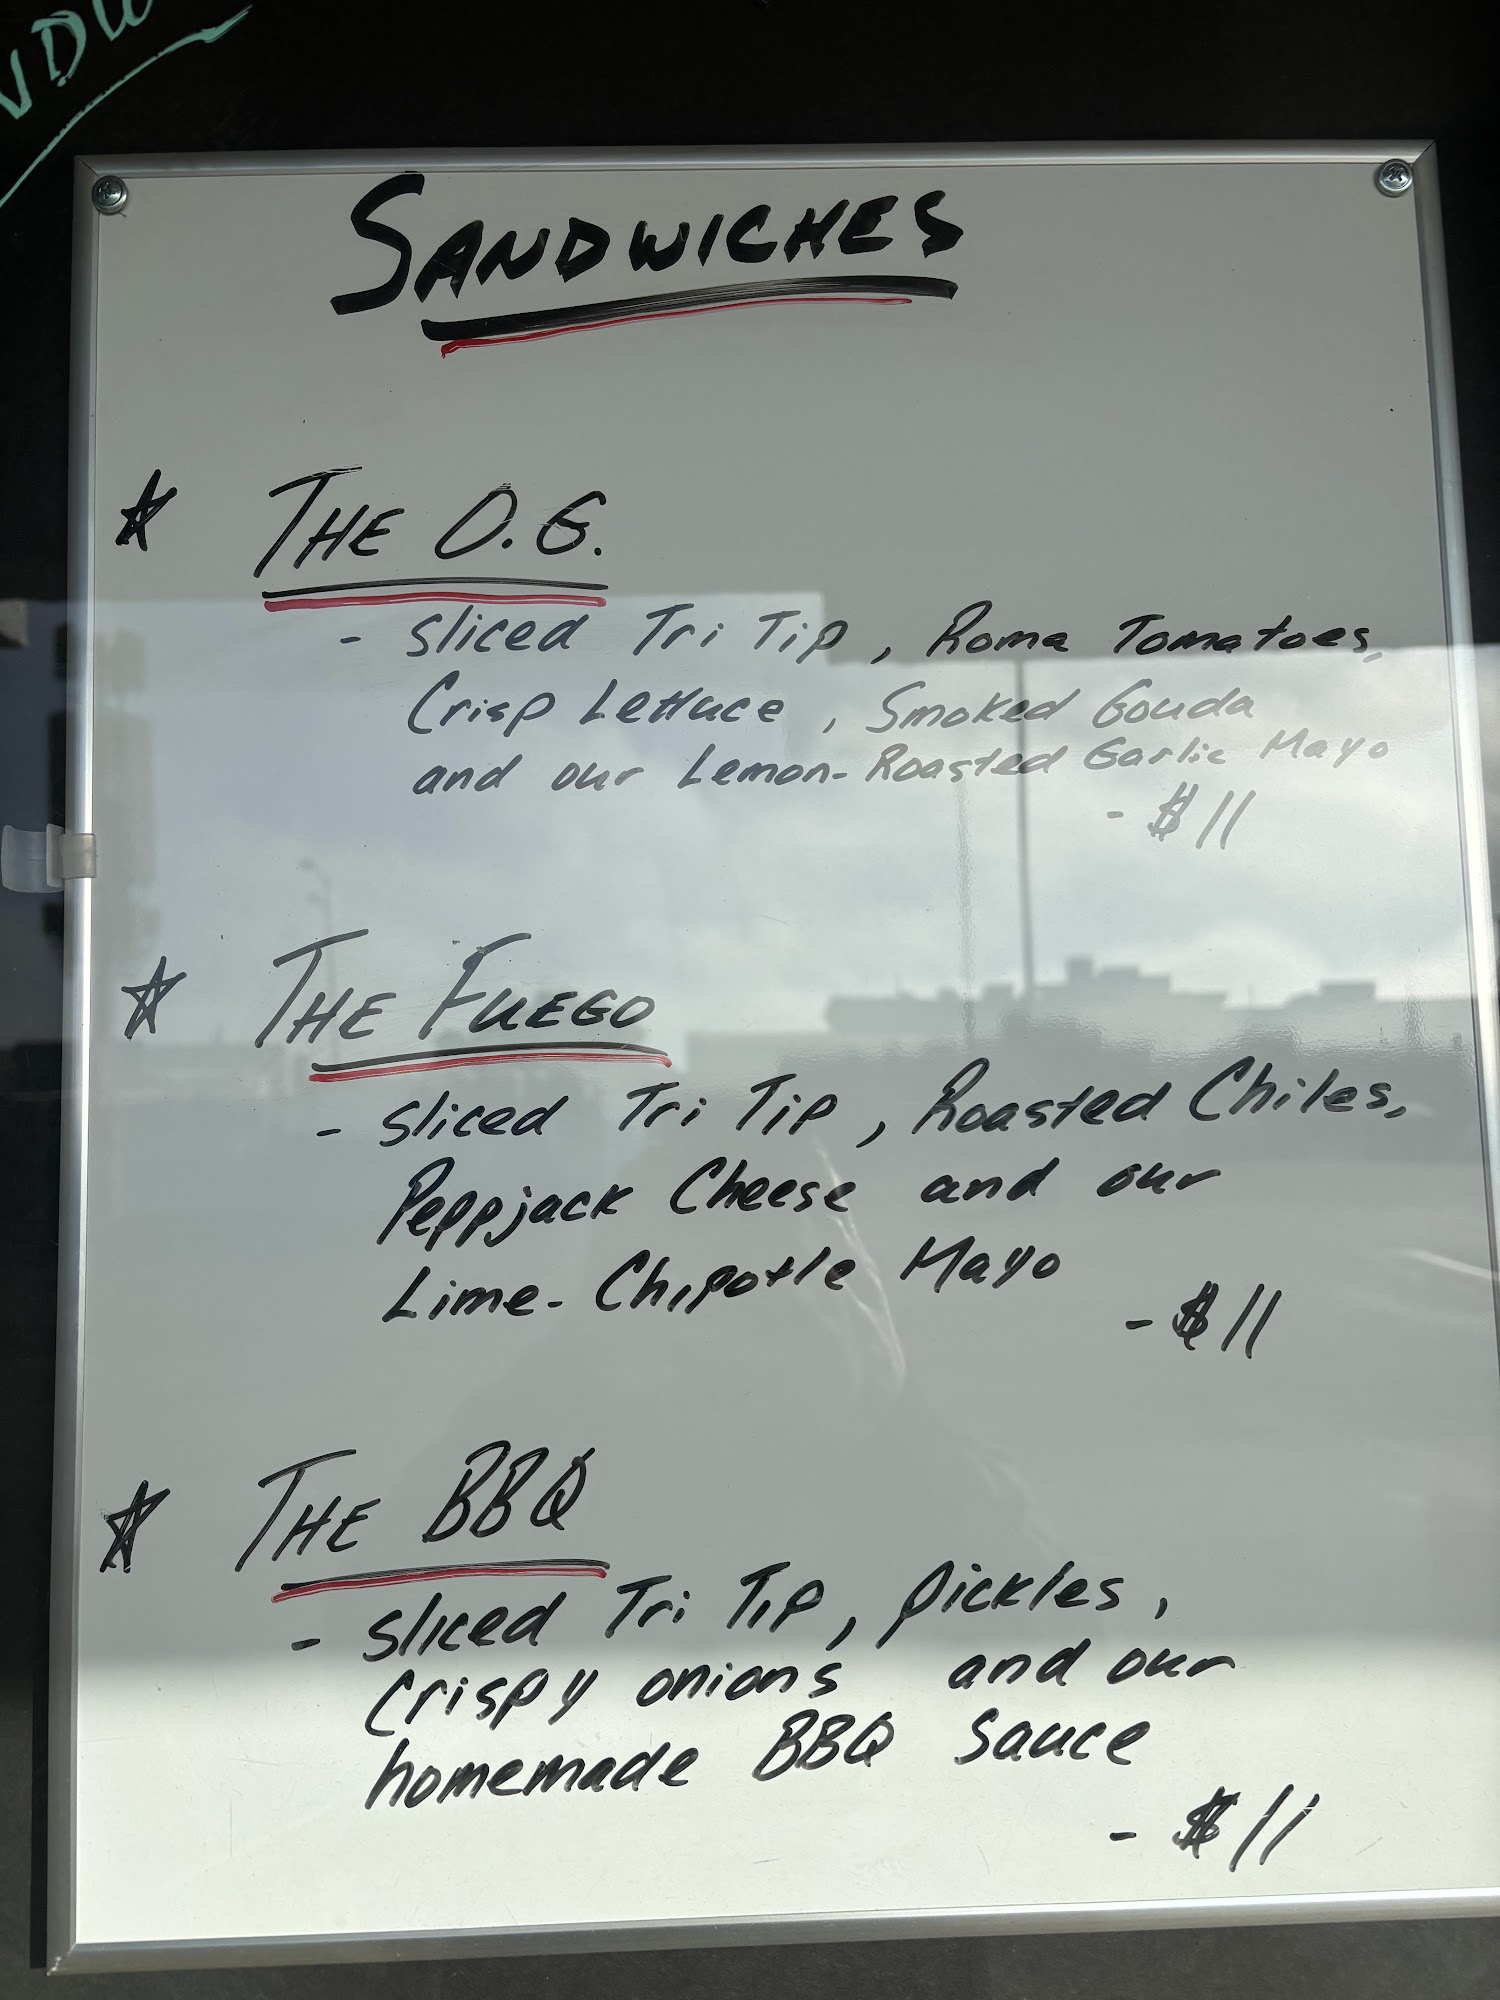 SANDWICHES
THE O.G.
- sliced Tri Tip, Roma Tomatoes,
Crisp Lettuce, Smoked Gouda
and our Lemon-Roasted Garlic Mayo
- $11
THE FUEGO
- sliced Tri Tip, Roasted Chiles,
Peppjack Cheese and our
Lime-Chipotle Mayo
- $11
THE BBQ
- sliced Tri Tip, pickles,
crispy onions and our
homemade BBQ Sauce
- $11